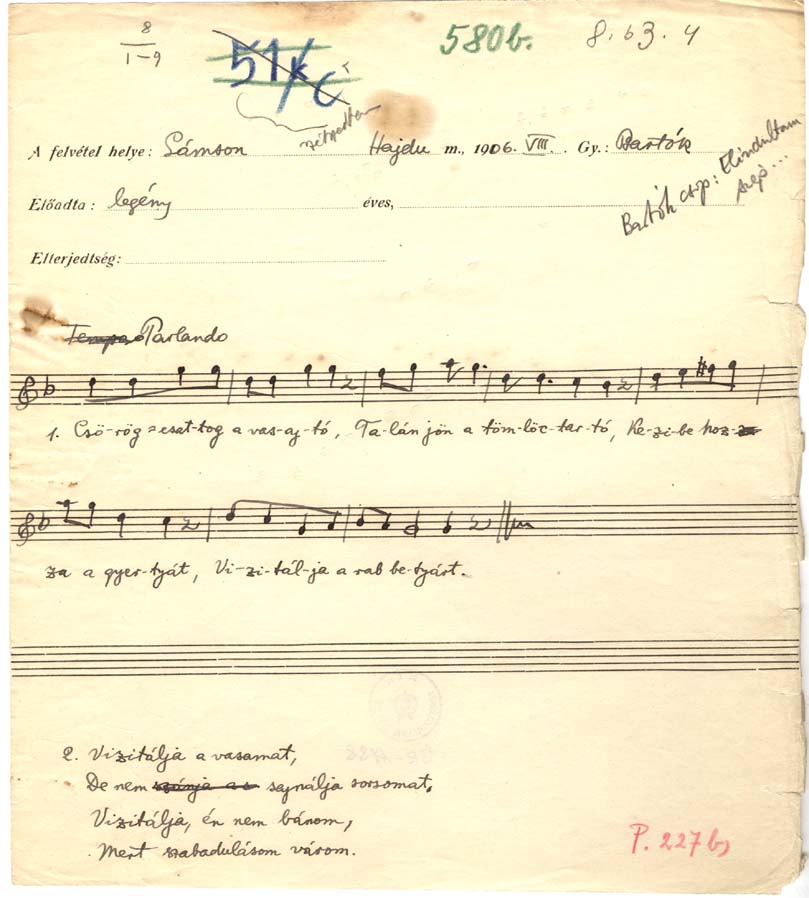 8
1–9
51/c
580b.
8. 63. 4
A felvétel helye: Sámson Hajdu m., 1906. VIII. Gy.: Bartók
Előadta: legény éves,
Bartók csop: Elindultam
Elterjedtség:
Tempo Parlando
1. Csö-rög-csat-tog a vas-aj-tó, Ta-lán jön a töm-löc-tar-tó, Ke-zi-be hoz-
za a gyer-tyát, Vi-zi-tál-ja a rab be-tyárt.
2. Vizitálja a vasamat,
De nem szánja a s sajnálja sorsomat,
Vizitálja, én nem bánom,
Mert szabadulásom várom.
P. 227b,